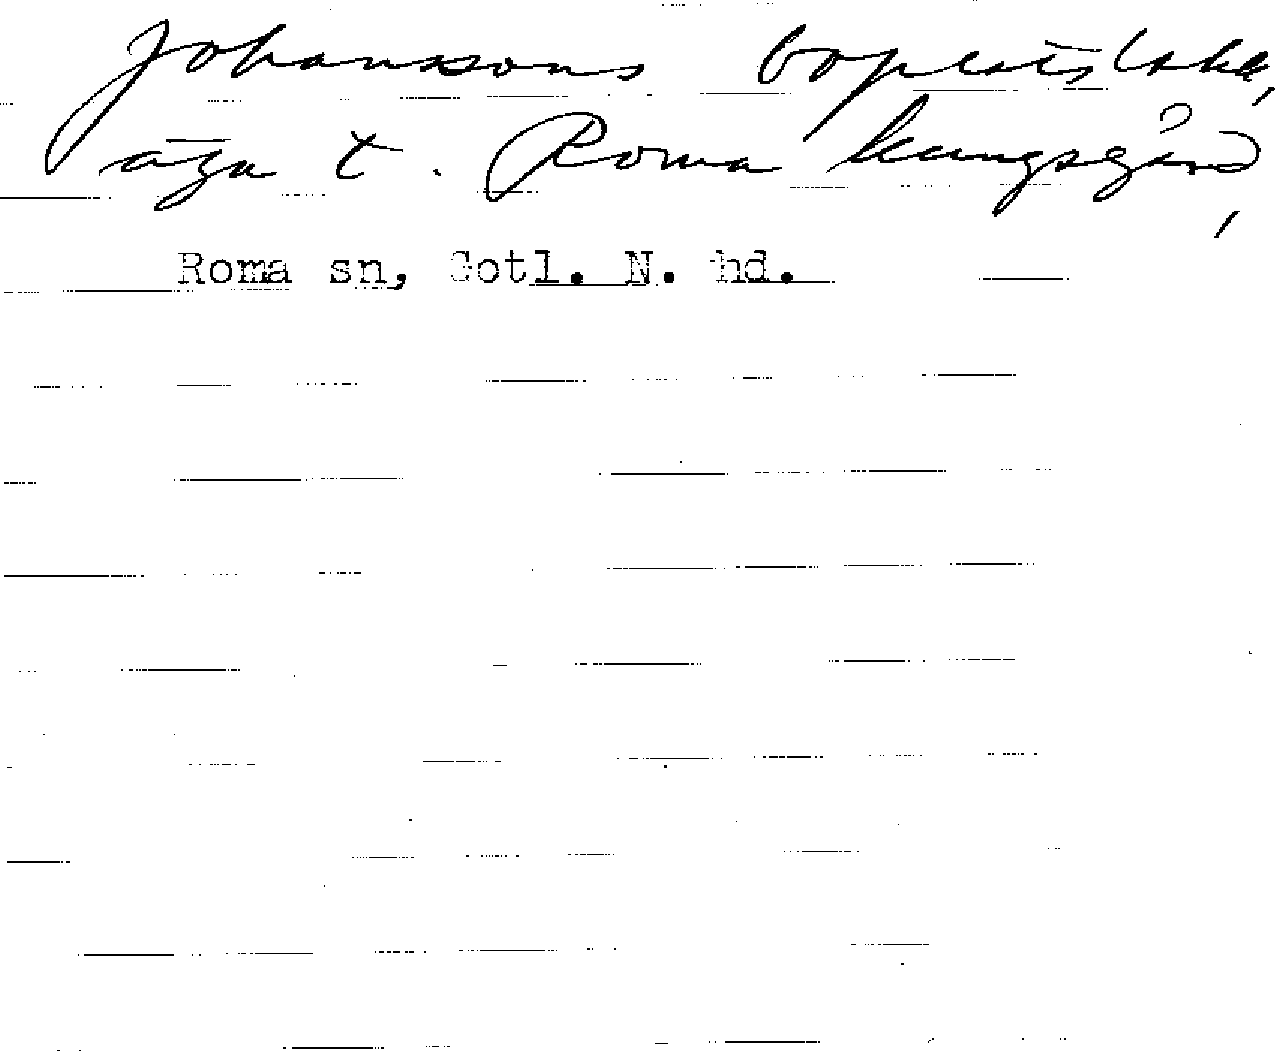 Johanssons boplatslake,
äga t. Roma kungsgård,
Roma sn, Gotl. N. hd.